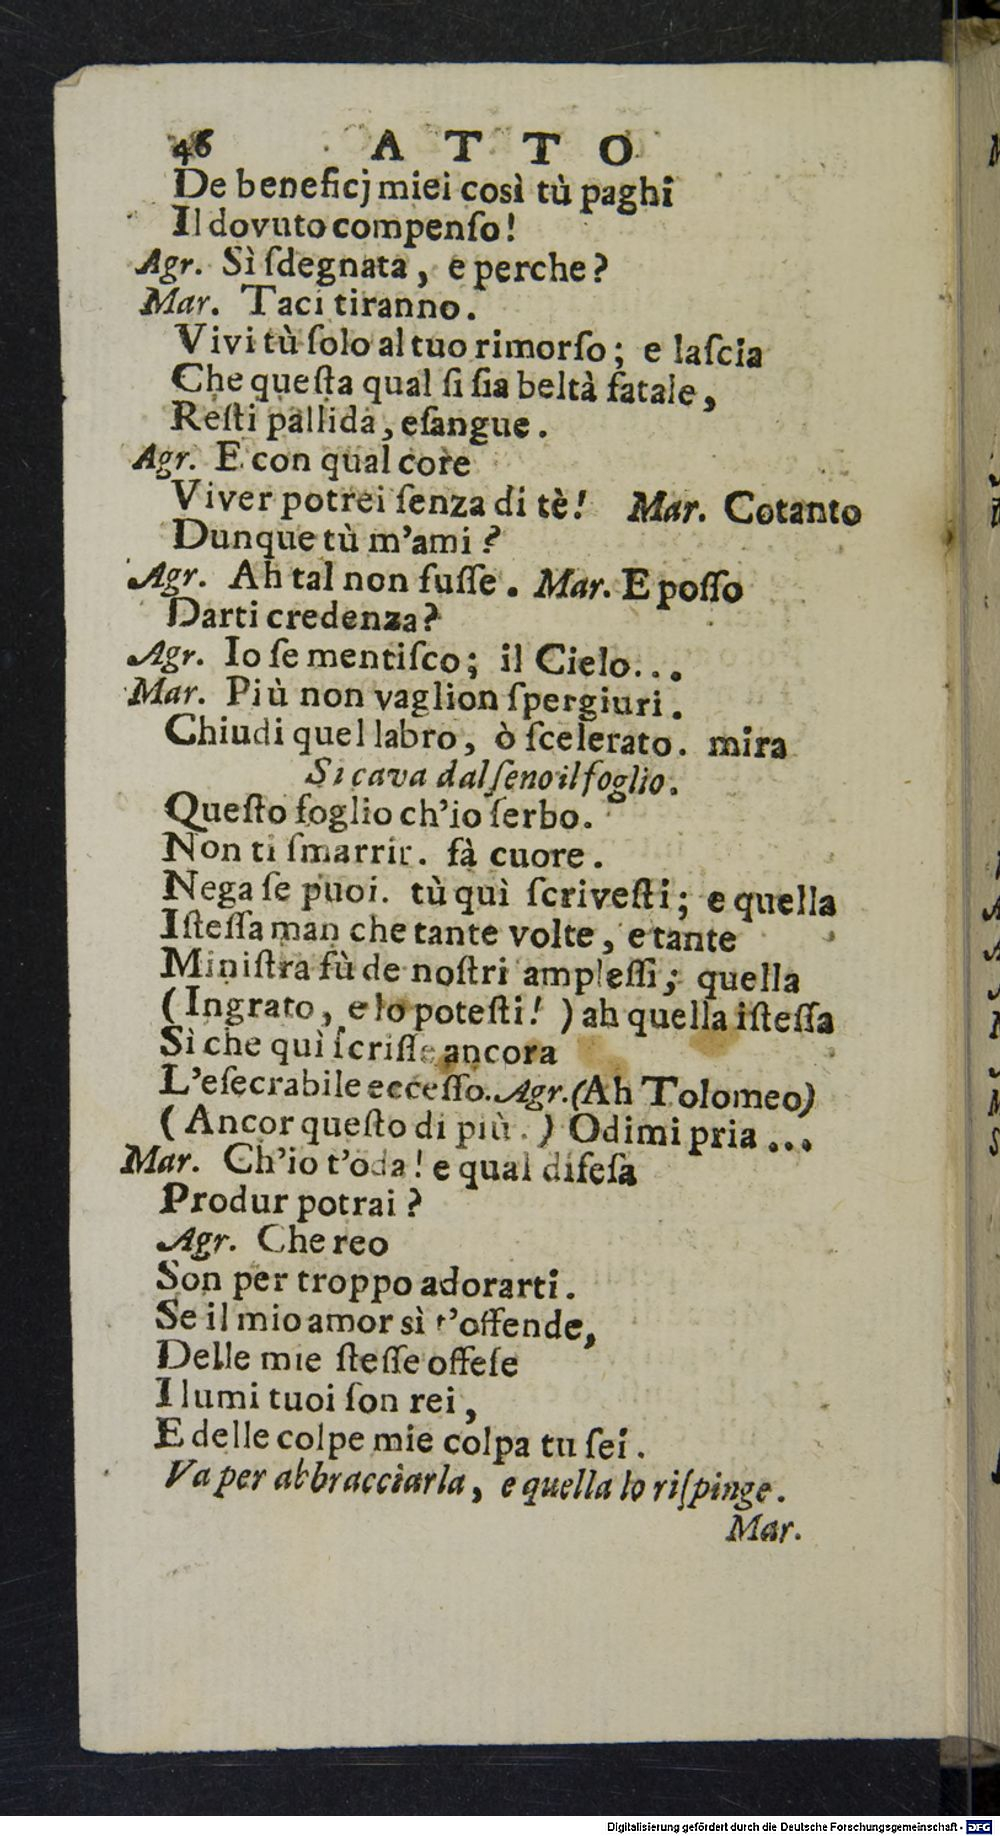 46 ATTO
De beneficj miei così tù paghi
Il dovuto compenſo!
Agr. Sì ſdegnata, e perche?
Mar. Taci tiranno.
Vivi tù ſolo al tuo rimorſo; e laſcia
Che queſta qual ſi ſia beltà fatale,
Reſti pallida, eſangue.
Agr. E con qual core
Viver potrei ſenza di tè! Mar. Cotanto
Dunque tù m'ami?
Agr. Ah tal non fuſſe. Mar. E poſſo
Darti credenza?
Agr. Io ſe mentiſco; il Cielo...
Mar. Più non vaglion ſpergiuri.
Chiudi quel labro, ò ſcelerato. mira
Si cava dal ſeno il foglio.
Queſto foglio ch'io ſerbo.
Non ti ſmarrir. fà cuore.
Nega ſe puoi. tù quì ſcriveſti; e quella
Iſteſſa man che tante volte, e tante
Miniſtra fù de noſtri ampleſſi; quella
(Ingrato, e lo poteſti!) ah quella iſteſſa
Sì che quì ſcriſſe ancora
L'eſecrabile ecceſſo. Agr. (Ah Tolomeo)
(Ancor queſto di più.) Odimi pria...
Mar. Ch'io t'oda! e qual difeſa
Produr potrai?
Agr. Che reo
Son per troppo adorarti.
Se il mio amor sì t'offende,
Delle mie ſteſſe offeſe
I lumi tuoi ſon rei,
E delle colpe mie colpa tu ſei.
Va per abbracciarla, e quella lo riſpinge.
Mar.
Digitalisierung gefördert durch die Deutsche Forschungsgemeinschaft - DFG